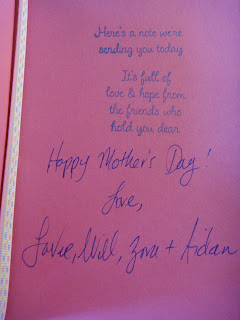 Here's a note we're
sending you today
It's full of
love & hope from
the friends who
hold you dear
Happy Mother's Day!
Love,
Will, Zora + Aidan